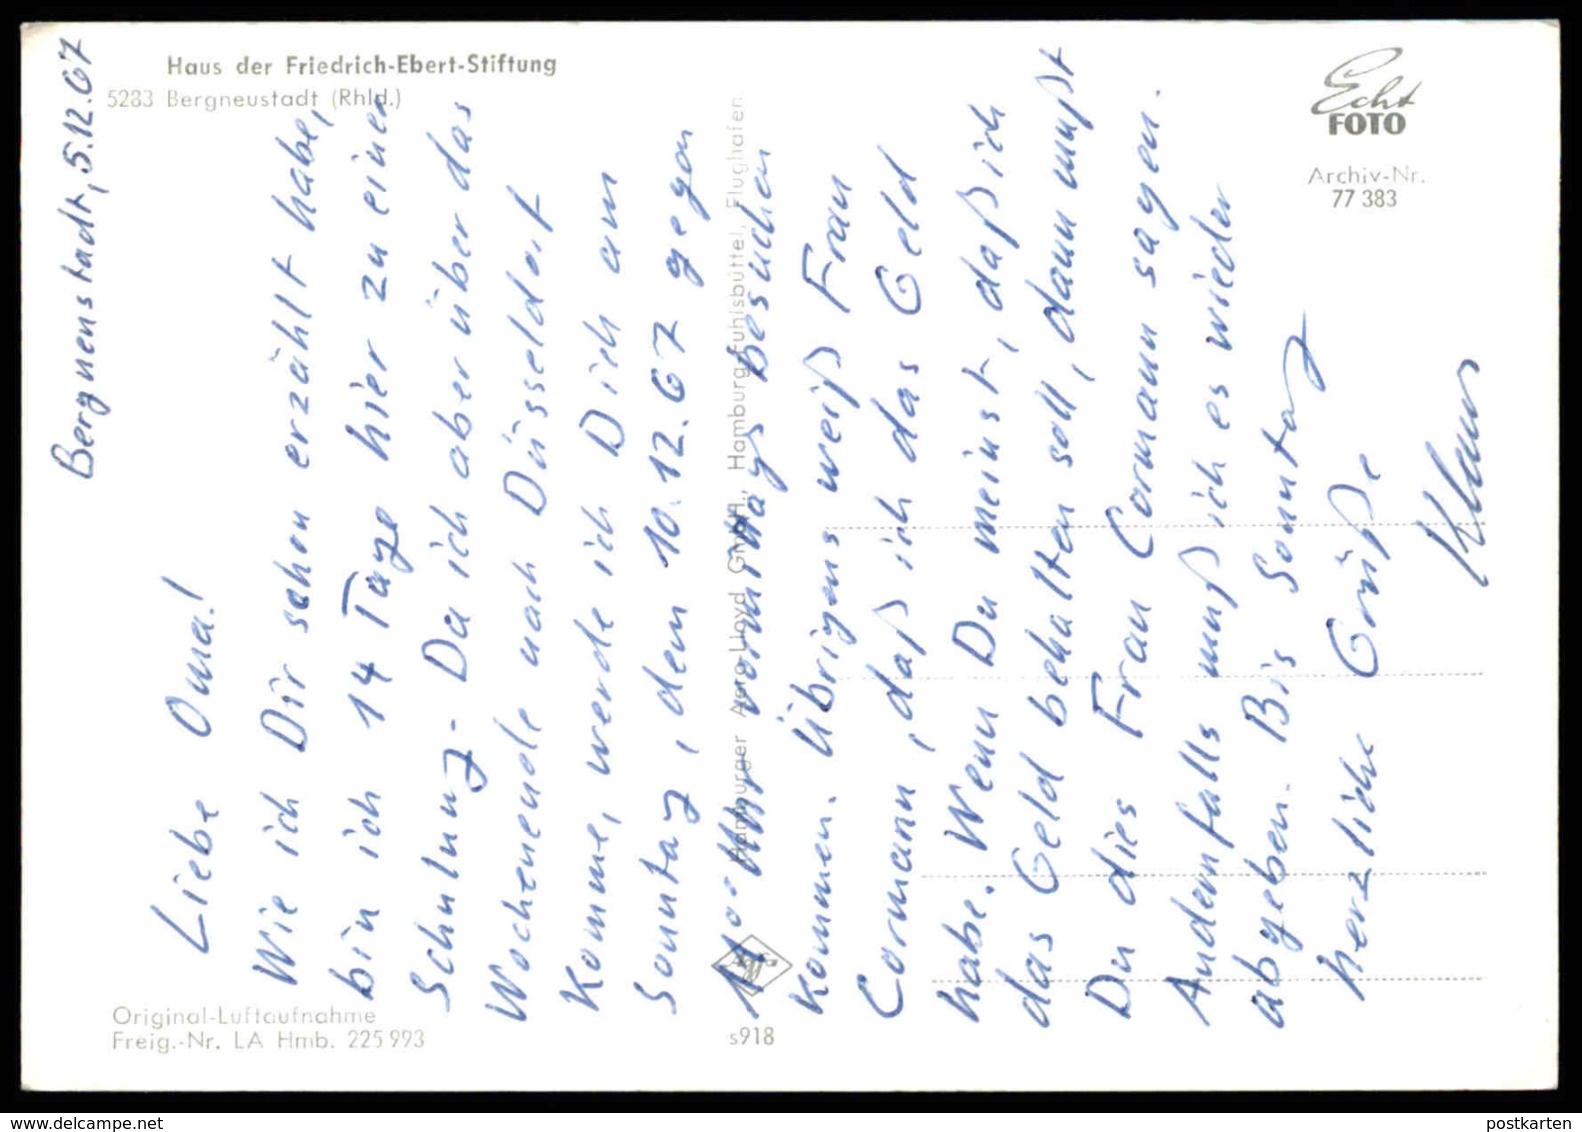 Haus der Friedrich-Ebert-Stiftung
5283 Bergneustadt (Rhld.)
Echt
FOTO
Archiv-Nr.
77 383
Bergneustadt, 5.12.67
Liebe Oma!
Wie ich Dir schon erzählt habe,
bin ich 14 Tage hier zu einer
Schulung. Da ich aber über das
Wochenende nach Düsseldorf
komme, werde ich Dich am
Sonntag, dem 10.12.67 gegen
11°° Uhr vormittags besuchen
kommen. Übrigens weiß Frau
Cormann, daß ich das Geld
habe. Wenn Du meinst, daß ich
das Geld behalten soll, dann mußt
Du dies Frau Cormann sagen.
Andernfalls muß ich es wieder
abgeben. Bis Sonntag
herzliche Grüße
Klaus
Hamburger Aero-Lloyd GmbH., Hamburg-Fuhlsbüttel, Flughafen
Original-Luftaufnahme
Freig.-Nr. LA Hmb. 225 993
s918
delcampe.net
postkarten